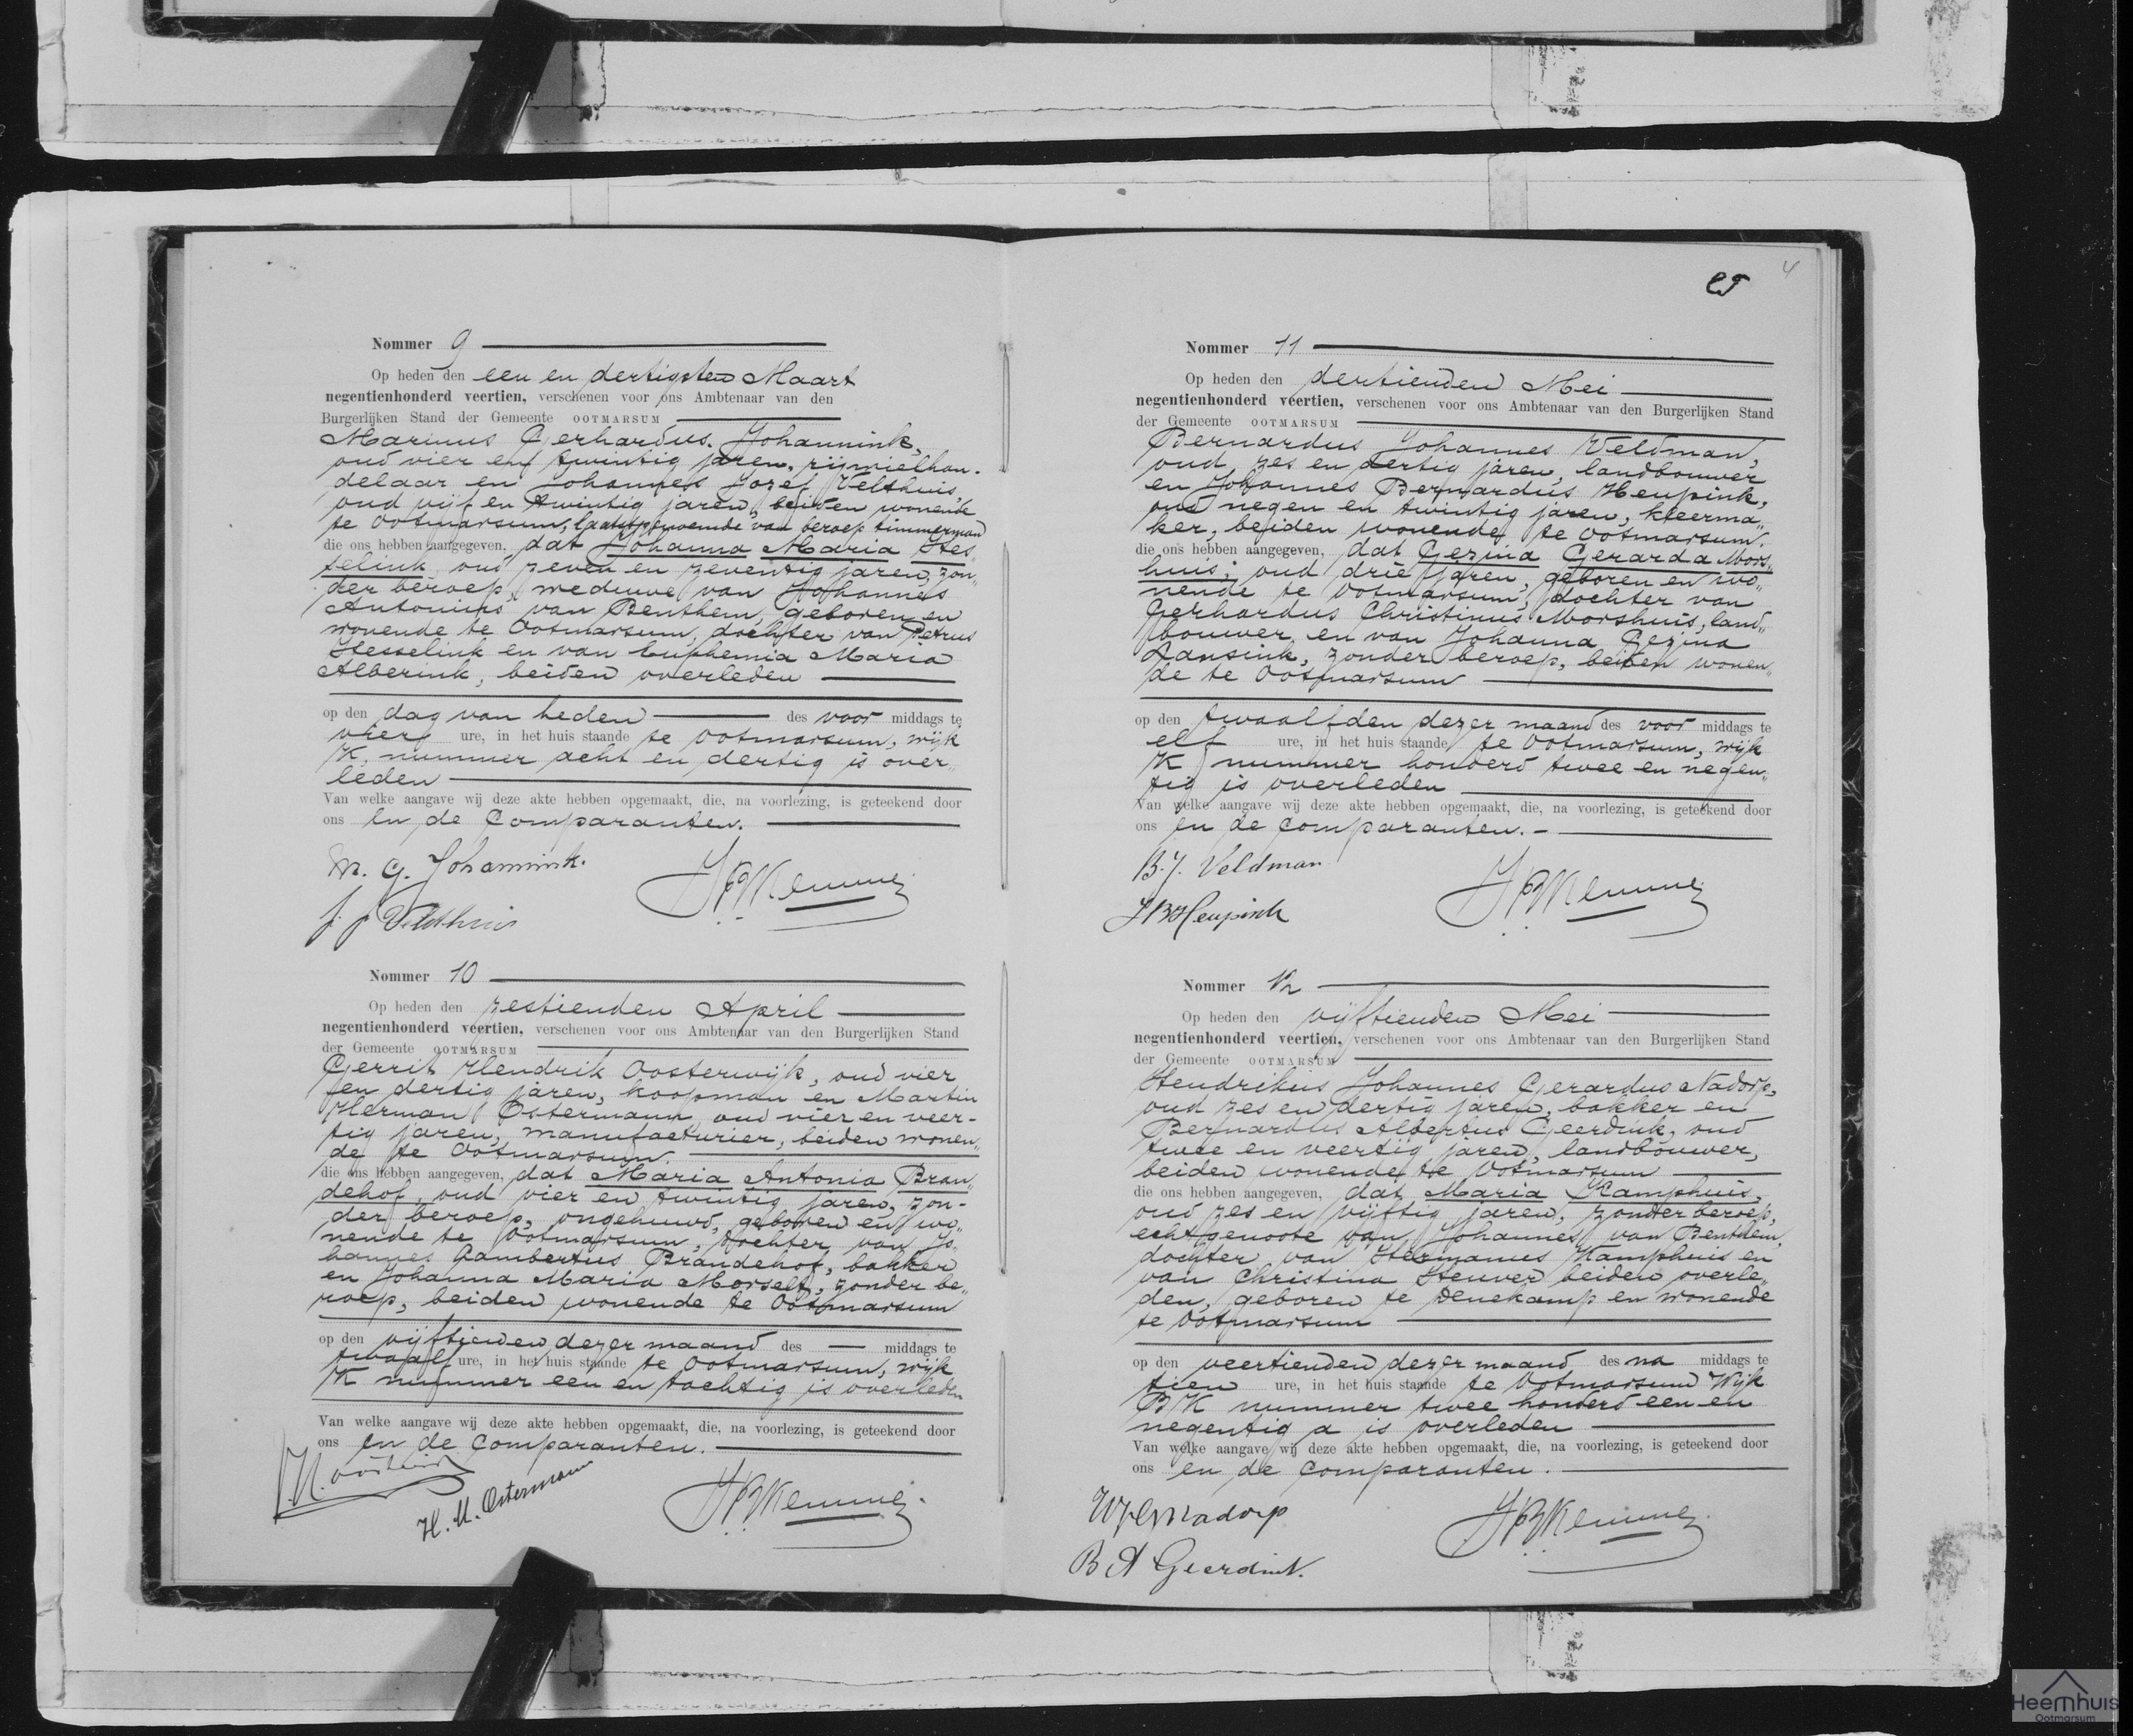 Nommer 9
Op heden den een en dertigsten Maart
negentienhonderd veertien, verschenen voor ons Ambtenaar van den
Burgerlijken Stand der Gemeente OOTMARSUM
Marinus Gerhardus Johannink,
oud vier en twintig jaren, rijwielhan-
delaar en Johannes Jozef Velthuis,
oud vijf en twintig jaren, beiden wonende
te Ootmarsum, laatstgenoemde van beroep timmerman
die ons hebben aangegeven, dat Johanna Maria Hes„
selink, oud zeven en zeventig jaren, zon„
der beroep, weduwe van Johannes
Antonius van Benthem, geboren en
wonende te Ootmarsum, dochter van Petrus
Hesselink en van Euphemia Maria
Alberink, beiden overleden
op den dag van heden des voor middags te
vier ure, in het huis staande te Ootmarsum, wijk
K, nummer acht en dertig is over„
leden
Van welke aangave wij deze akte hebben opgemaakt, die, na voorlezing, is geteekend door
ons en de Comparanten.
M. G. Johannink.
J. J. Velthuis
Nommer 10
Op heden den zestienden April
negentienhonderd veertien, verschenen voor ons Ambtenaar van den Burgerlijken Stand
der Gemeente OOTMARSUM
Gerrit Hendrik Oosterwijk, oud vier
en dertig jaren, koopman en Martin
Herman Ostermann, oud vier en veer-
tig jaren, manufacturier, beiden wonen„
de te Ootmarsum.
die ons hebben aangegeven, dat Maria Antonia Bran„
dehof, oud vier en twintig jaren, zon-
der beroep, ongehuwd, geboren en wo„
nende te Ootmarsum, dochter van Jo„
hannes Lambertus Brandehof, bakker
en Johanna Maria Morselt, zonder be„
roep, beiden wonende te Ootmarsum
op den vijftienden dezer maand des — middags te
twaalf ure, in het huis staande te Ootmarsum, wijk
K nummer een en tachtig is overleden
Van welke aangave wij deze akte hebben opgemaakt, die, na voorlezing, is geteekend door
ons en de Comparanten.
H. M. Ostermann
4
Nommer 11
Op heden den dertienden Mei
negentienhonderd veertien, verschenen voor ons Ambtenaar van den Burgerlijken Stand
der Gemeente OOTMARSUM
Bernardus Johannes Veldman,
oud zes en dertig jaren, landbouwer
en Johannes Bernardus Heupink,
oud negen en twintig jaren, kleerma„
ker, beiden wonende te Ootmarsum.
die ons hebben aangegeven, dat Gezina Gerarda Mors„
huis, oud drie jaren, geboren en wo„
nende te Ootmarsum, dochter van
Gerhardus Christinus Morshuis, land„
bouwer, en van Johanna Gezina
Lansink, zonder beroep, beiden wonen„
de te Ootmarsum
op den twaalfden dezer maand des voor middags te
elf ure, in het huis staande te Ootmarsum, wijk
K nummer honderd twee en negen„
tig is overleden
Van welke aangave wij deze akte hebben opgemaakt, die, na voorlezing, is geteekend door
ons en de comparanten.
B. J. Veldman
J B Heupink
Nommer 12
Op heden den vijftienden Mei
negentienhonderd veertien, verschenen voor ons Ambtenaar van den Burgerlijken Stand
der Gemeente OOTMARSUM
Hendrikus Johannes Gerardus Nadorp,
oud zes en dertig jaren, bakker en
Bernardus Albertus Geerdink, oud
twee en veertig jaren, landbouwer,
beiden wonende te Ootmarsum
die ons hebben aangegeven, dat Maria Kamphuis,
oud zes en vijftig jaren, zonder beroep,
echtgenoote van Johannes van Benthem,
dochter van Hermanus Kamphuis en
van Christina Heuver beiden overle„
den, geboren te Denekamp en wonende
te Ootmarsum
op den veertienden dezer maand des na middags te
tien ure, in het huis staande te Ootmarsum Wijk
B/K nummer twee honderd een en
negentig a is overleden
Van welke aangave wij deze akte hebben opgemaakt, die, na voorlezing, is geteekend door
ons en de comparanten.
Nadorp
B A Geerdink.
Heemhuis
Ootmarsum